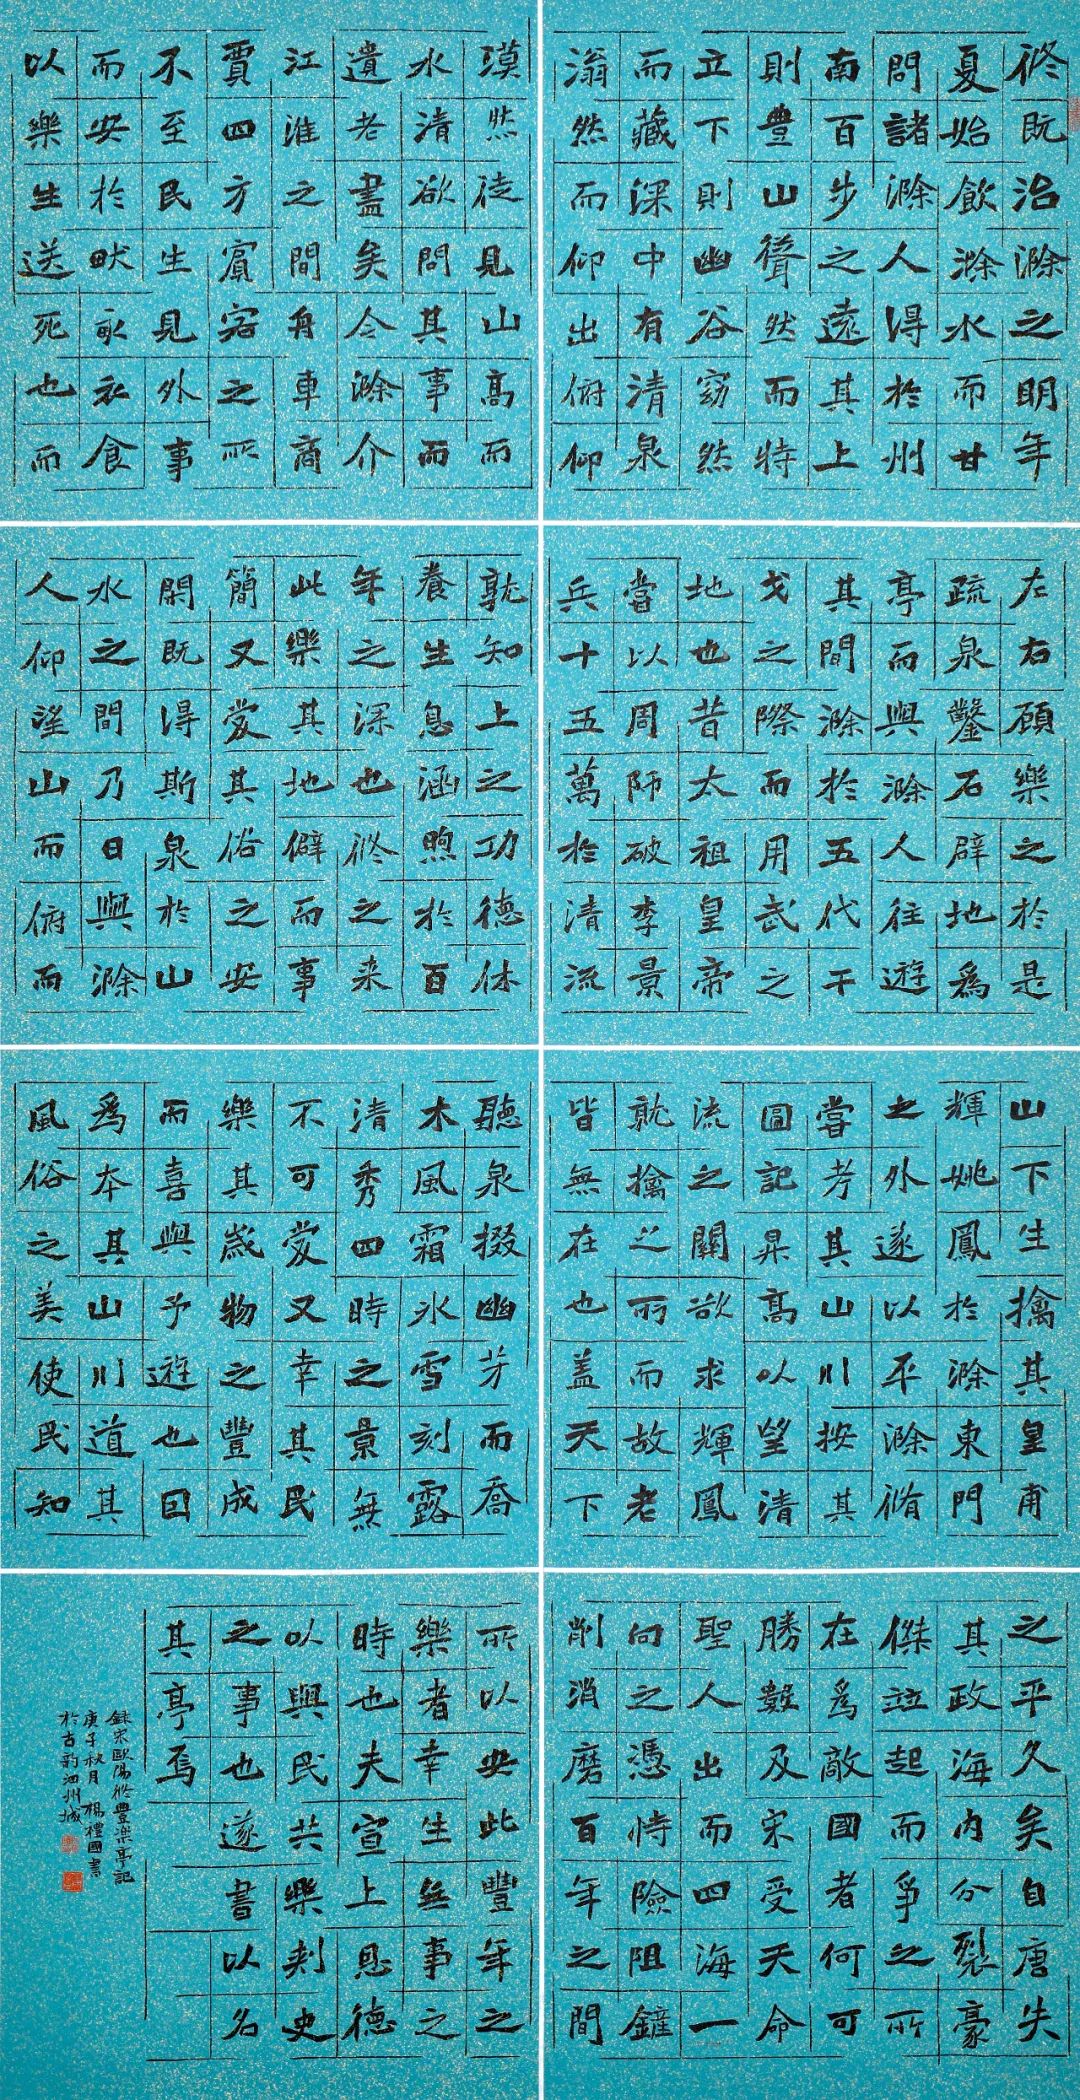 修既治滁之明年
夏始飲滁水而甘
問諸滁人得於州
南百步之遠其上
則豊山聳然而特
立下則幽谷窈然
而藏深中有清泉
滃然而仰出俯仰
左右顧樂之於是
疏泉鑿石辟地爲
亭而與滁人往遊
其間滁於五代干
戈之際而用武之
地也昔太祖皇帝
當以周師破李景
兵十五萬於清流
山下生擒其皇甫
輝姚鳳於滁東門
之外遂以平滁脩
嘗考其山川按其
圖記昇高以望清
流之關欲求輝鳳
就擒之所而故老
皆無在也蓋天下
之平久矣自唐失
其政海内分裂豪
傑竝起而爭之所
在爲敵國者何可
勝數及宋受天命
聖人出而四海一
向之憑恃險阻鏟
削消磨百年之間
漠然徒見山高而
水清欲問其事而
遺老盡矣今滁介
江淮之間舟車商
賈四方賓客之所
不至民生見外事
而安於畎畝衣食
以樂生送死也而
孰知上之功德休
養生息涵煦於百
年之深也修之來
此樂其地僻而事
簡又愛其俗之安
閑既得斯泉於山
水之間乃日與滁
人仰望山而俯而
聽泉掇幽芳而喬
木風霜冰雪刻露
清秀四時之景無
不可愛又幸其民
樂其歲物之豐成
而喜與予遊也因
爲本其山川道其
風俗之美使民知
所以安此豐年之
樂者幸生無事之
時也夫宣上恩德
以與民共樂刺史
之事也遂書以名
其亭焉
録宋歐陽修豊樂亭記
庚子秋月楊禮國書
於古韵泗州城